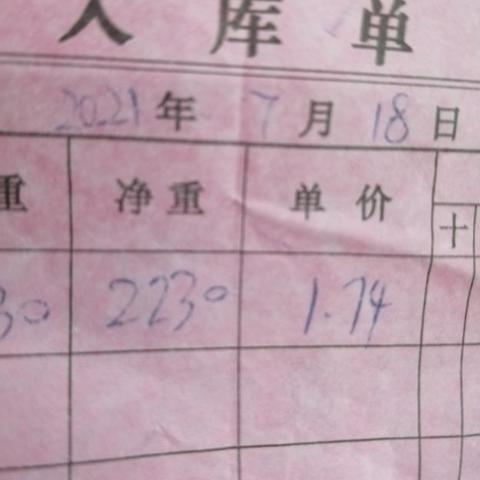 入库单
2021年 7月 18日
重 净重 单价 十
30 2230 1.74